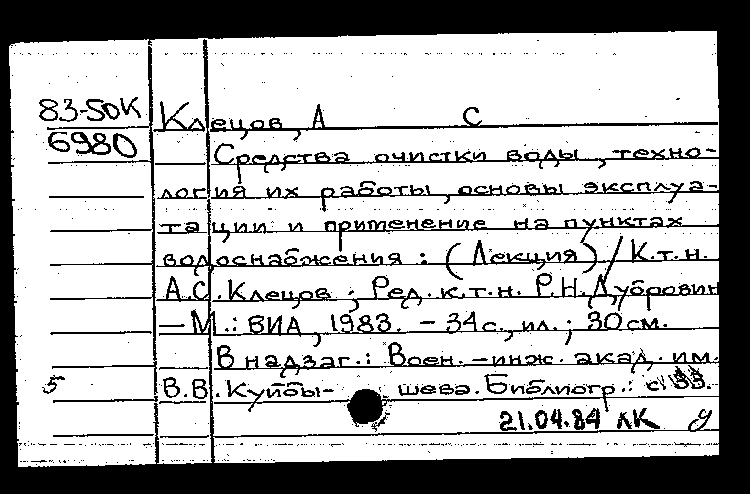 83-50К Клецов, А С
6980 Средства очистки воды, техно-
логия их работы, основы эксплуа-
тации и применение на пунктах
водоснабжения: (Лекция) / К.т.н.
А.С. Клецов; Ред. к.т.н. Р.Н. Дубровин
— М.: ВИА, 1983. - 34 с., ил.; 30 см.
В надзаг.: Воен.-инж. акад. им.
5 В.В. Куйбы- шева. Библиогр.: с.
21.04.84 ЛК